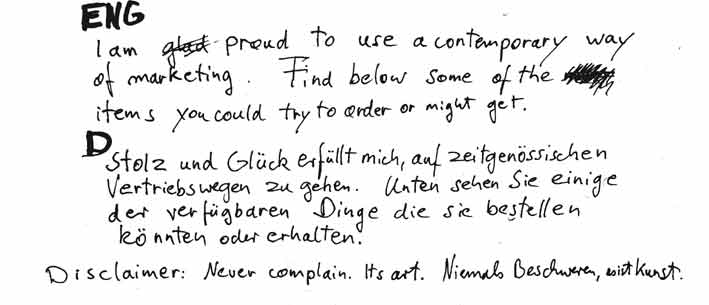 ENG
I am glad proud to use a contemporary way
of marketing. Find below some of the
items you could try to order or might get.
D
Stolz und Glück erfüllt mich, auf zeitgenössischen
Vertriebswegen zu gehen. Unten sehen Sie einige
der verfügbaren Dinge die sie bestellen
könnten oder erhalten.
Disclaimer: Never complain. Its art. Niemals Beschweren, Kunst.